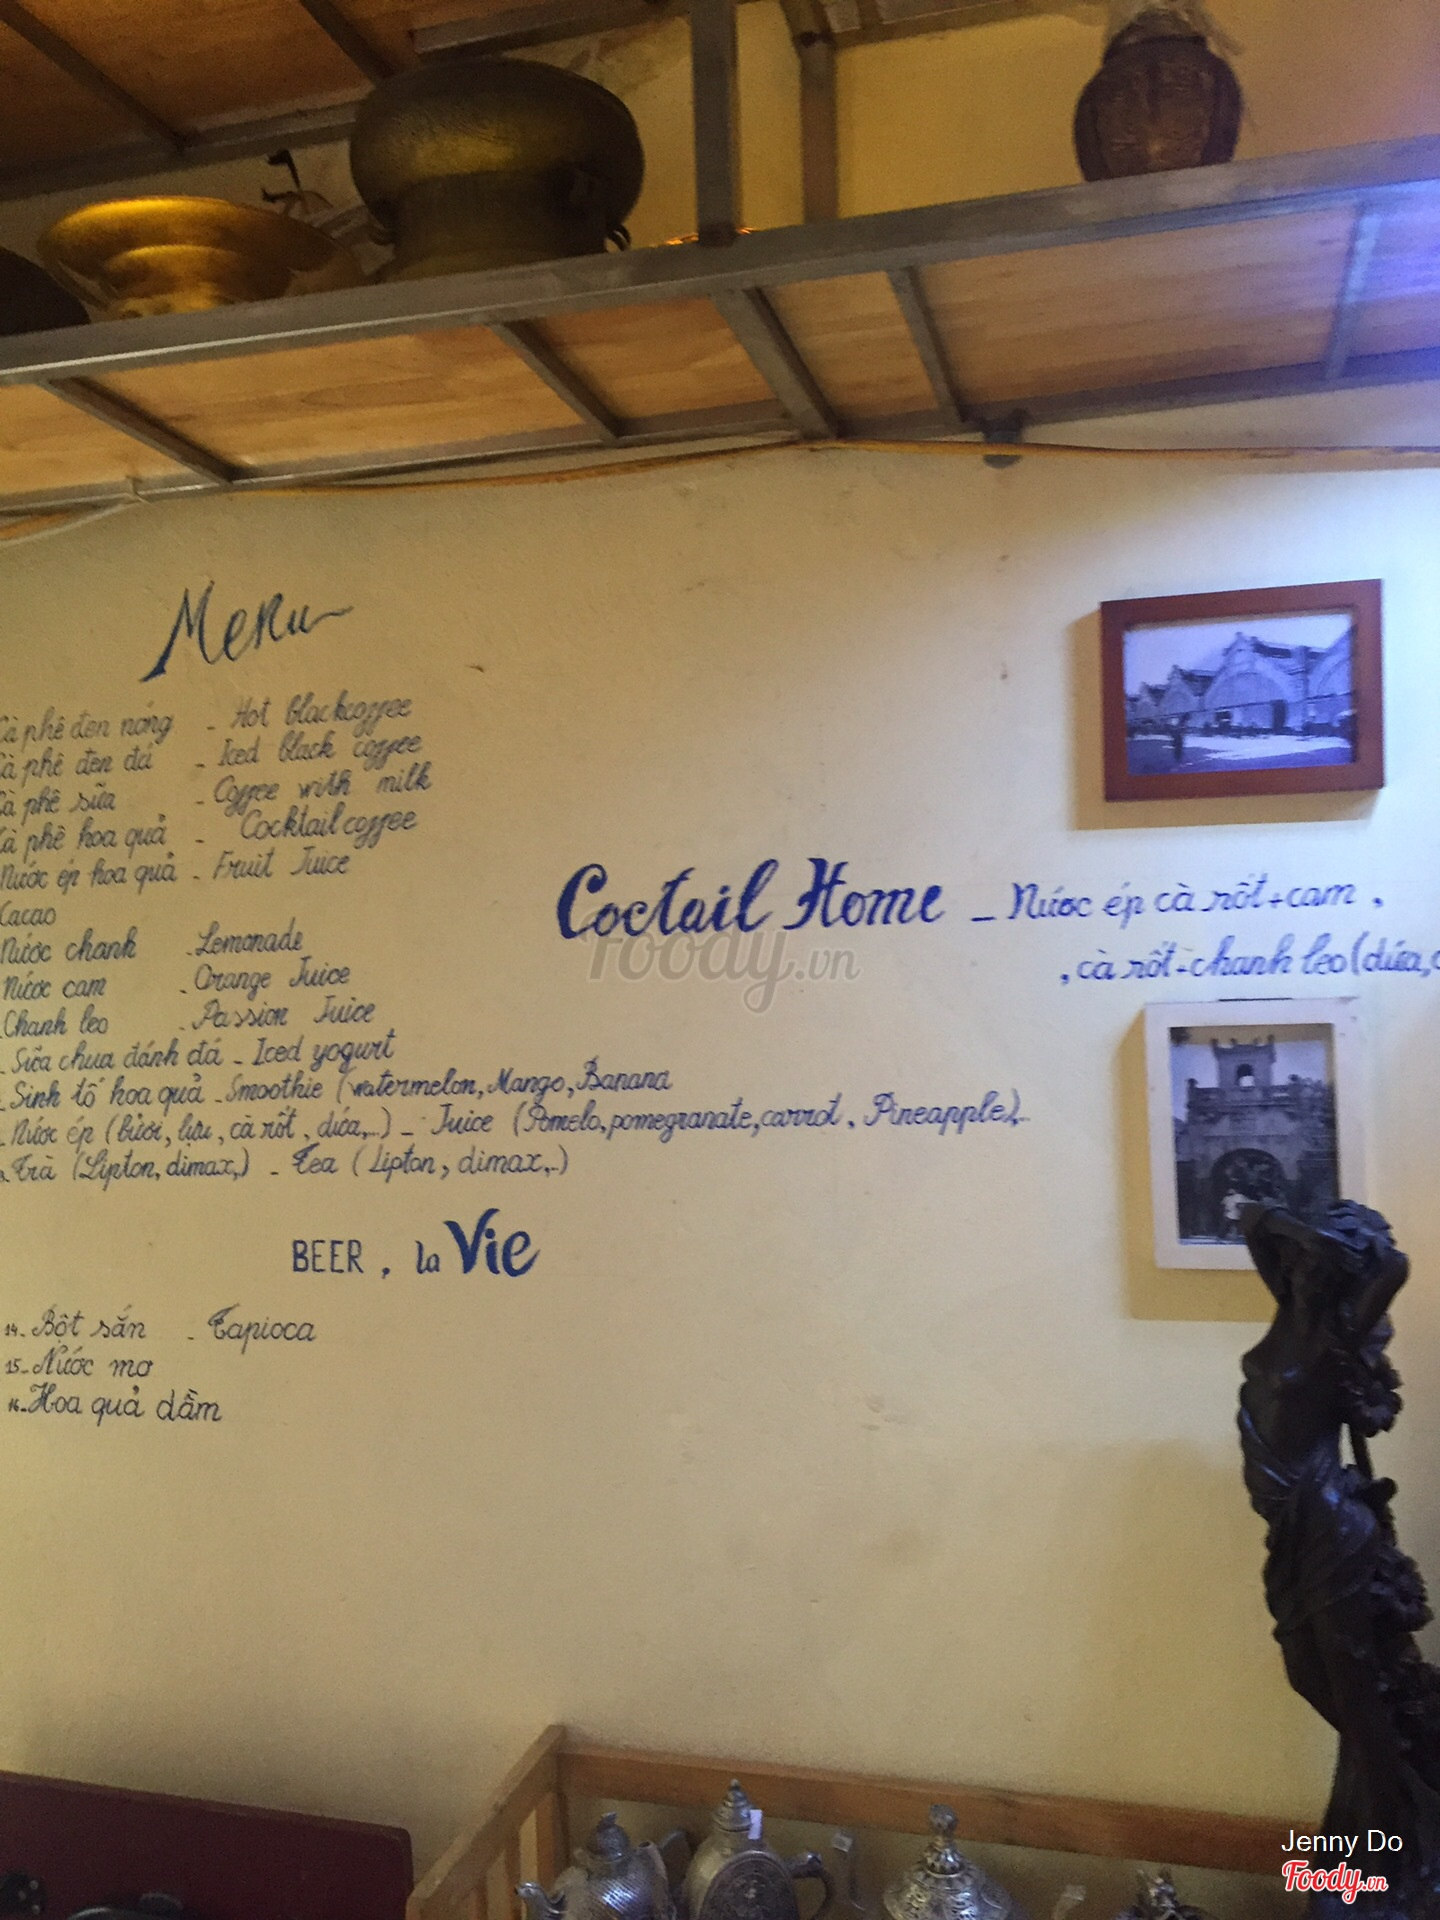 Menu
Cà phê đen nóng - Hot blackcoffee
Cà phê đen đá - Iced black coffee
Cà phê sữa - Coffee with milk
Cà phê hoa quả - Cocktail coffee
Nước ép hoa quả - Fruit Juice
Cacao
Nước chanh - Lemonade
Nước cam - Orange Juice
Chanh leo - Passion Juice
- Sữa chua đánh đá - Iced yogurt
- Sinh tố hoa quả - Smoothie (watermelon, Mango, Banana
- Nước ép (bưởi, lựu, cà rốt, dứa,...) - Juice (Pomelo, pomegranate, carrot, Pineapple),..
- Trà (Lipton, dimax,) - Tea (Lipton, dimax,..)
BEER, la Vie
14- Bột sắn - Tapioca
15- Nước mơ
16- Hoa quả dầm
Coctail Home - Nước ép cà rốt + cam,
, cà rốt - chanh leo (dứa,
Foody.vn
Jenny Do
Foody.vn